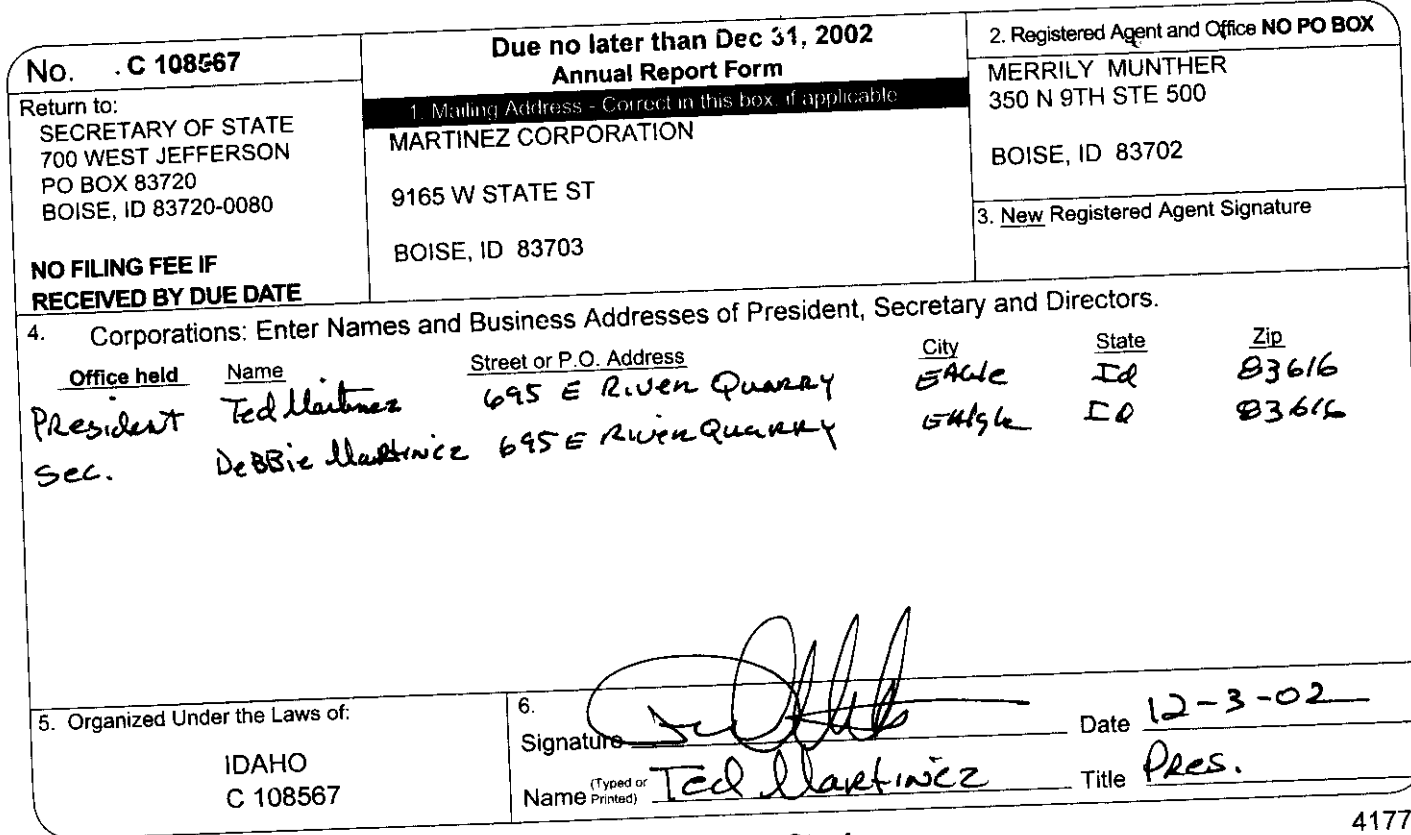 No. . C 108567
Return to:
SECRETARY OF STATE
700 WEST JEFFERSON
PO BOX 83720
BOISE, ID 83720-0080
NO FILING FEE IF
RECEIVED BY DUE DATE
Due no later than Dec 31, 2002
Annual Report Form
1. Mailing Address - Correct in this box, if applicable
MARTINEZ CORPORATION
9165 W STATE ST
BOISE, ID 83703
2. Registered Agent and Office NO PO BOX
MERRILY MUNTHER
350 N 9TH STE 500
BOISE, ID 83702
3. New Registered Agent Signature
4. Corporations: Enter Names and Business Addresses of President, Secretary and Directors.
Office held Name Street or P.O. Address City State Zip
President Ted Martinez 695 E River Quarry Eagle Id 83616
Sec. DeBBie Martinez 695 E River Quarry Eagle Id 83616
5. Organized Under the Laws of:
IDAHO
C 108567
6.
Signature Date 12-3-02
Name (Typed or Printed) Ted Martinez Title Pres.
4177